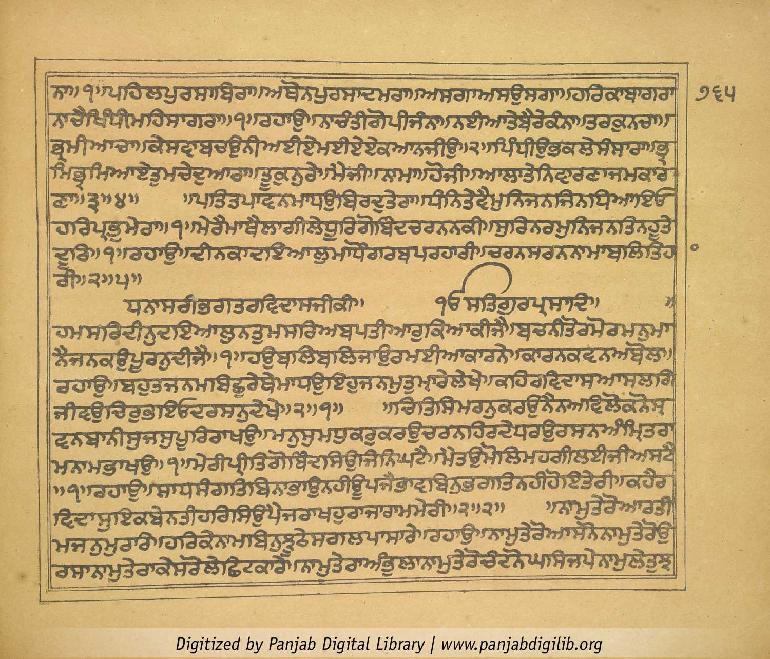 ਨਾ॥੧॥ਪਹਿਲਪੁਰਸਾਬਿਰਾ॥ਅਥੋਨਪੁਰਸਾਦਮਰਾ॥ਅਸਗਾਅਸਉਸਗਾ॥ਹਰਿਕਾਬਾਗਰਾ
੭੬੫
ਨਾਚੈਪਿੰਧੀਮਹਿਸਾਗਰਾ॥੧॥ਰਹਾਉ॥ਨਾਚੰਤੀਗੋਪੀਜੰਨਾ॥ਨਈਆਤੇਬੈਰੇਕੰਨਾ॥ਤਰਕੁਨਚਾ॥
ਭ੍ਰਮੀਆਚਾ॥ਕੇਸਵਾਬਚਉਨੀਅਈਏਮਈਏਏਕਆਨਜੀਉ॥੨॥ਪਿੰਧੀਉਭਕਲੇਸੰਸਾਰਾ॥ਭ੍ਰ
ਮਿਭ੍ਰਮਿਆਏਤੁਮਚੇਦੁਆਰਾ॥ਤੂਕੁਨੁਰੇ॥ਮੈਜੀ॥ਨਾਮਾ॥ਹੋਜੀ॥ਆਲਾਤੇਨਿਵਾਰਣਾਜਮਕਾਰ
ਣਾ॥੩॥੪॥ ਪਤਿਤਪਾਵਨਮਾਧਉਬਿਰਦੁਤੇਰਾ॥ਧੰਨਿਤੇਵੈਮੁਨਿਜਨਜਿਨਧਿਆਇਓ
ਹਰਿਪ੍ਰਭੁਮੇਰਾ॥੧॥ਮੇਰੈਮਾਥੈਲਾਗੀਲੇਧੂਰਿਗੋਬਿੰਦਚਰਨਨਕੀ॥ਸੁਰਿਨਰਮੁਨਿਜਨਤਿਨਹੂਤੇ
ਦੂਰਿ॥੧॥ਰਹਾਉ॥ਦੀਨਕਾਦਇਆਲੁਮਾਧੌਗਰਬਪਰਹਾਰੀ॥ਚਰਨਸਰਨਨਾਮਾਬਲਿਤਿਹਾ
ਰੀ॥੨॥੫॥
ਧਨਾਸਰੀਭਗਤਰਵਿਦਾਸਜੀਕੀ॥ ੴਸਤਿਗੁਰਪ੍ਰਸਾਦਿ॥
ਹਮਸਰਿਦੀਨੁਦਇਆਲੁਨਤੁਮਸਰਿਅਬਪਤੀਆਰੁਕਿਆਕੀਜੈ॥ਬਚਨੀਤੋਰਮੋਰਮਨੁਮਾ
ਨੈਜਨਕਉਪੂਰਨੁਦੀਜੈ॥੧॥ਹਉਬਲਿਬਲਿਜਾਉਰਮਈਆਕਾਰਨੇ॥ਕਾਰਨਕਵਨਅਬੋਲ॥
ਰਹਾਉ॥ਬਹੁਤਜਨਮਬਿਛੁਰੇਥੇਮਾਧਉਇਹੁਜਨਮੁਤੁਮ੍ਹਾਰੇਲੇਖੇ॥ਕਹਿਰਵਿਦਾਸਆਸਲਗਿ
ਜੀਵਉਚਿਰਭਇਓਦਰਸਨੁਦੇਖੇ॥੨॥੧॥ ਚਿਤਸਿਮਰਨੁਕਰਉਨੈਨਅਵਿਲੋਕਨੋਸ੍ਰ
ਵਨਬਾਨੀਸੁਜਸੁਪੂਰਿਰਾਖਉ॥ਮਨੁਸੁਮਧੁਕਰੁਕਰਉਚਰਨਹਿਰਦੇਧਰਉਰਸਨਅੰਮ੍ਰਿਤਰਾ
ਮਨਾਮਭਾਖਉ॥੧॥ਮੇਰੀਪ੍ਰੀਤਿਗੋਬਿੰਦਸਿਉਜਿਨਿਘਟੈ॥ਮੈਤਉਮੋਲਿਮਹਗੀਲਈਜੀਅਸਟੈ
॥੧॥ਰਹਾਉ॥ਸਾਧਸੰਗਤਿਬਿਨਾਭਾਉਨਹੀਊਪਜੈਭਾਵਬਿਨੁਭਗਤਿਨਹੀਹੋਇਤੇਰੀ॥ਕਹੈਰ
ਵਿਦਾਸੁਇਕਬੇਨਤੀਹਰਿਸਿਉਪੈਜਰਾਖਹੁਰਾਜਾਰਾਮਮੇਰੀ॥੨॥੨॥ ਨਾਮੁਤੇਰੋਆਰਤੀ
ਮਜਨੁਮੁਰਾਰੇ॥ਹਰਿਕੇਨਾਮਬਿਨੁਝੂਠੇਸਗਲਪਾਸਾਰੇ॥ਰਹਾਉ॥ਨਾਮੁਤੇਰੋਆਸਨੋਨਾਮੁਤੇਰੋਉ
ਰਸਾਨਾਮੁਤੇਰਾਕੇਸਰੋਲੇਛਿਟਕਾਰੇ॥ਨਾਮੁਤੇਰਾਅੰਭੁਲਾਨਾਮੁਤੇਰੋਚੰਦਨੋਘਸਿਜਪੇਨਾਮੁਲੇਤੁਝ
Digitized by Panjab Digital Library | www.panjabdigilib.org